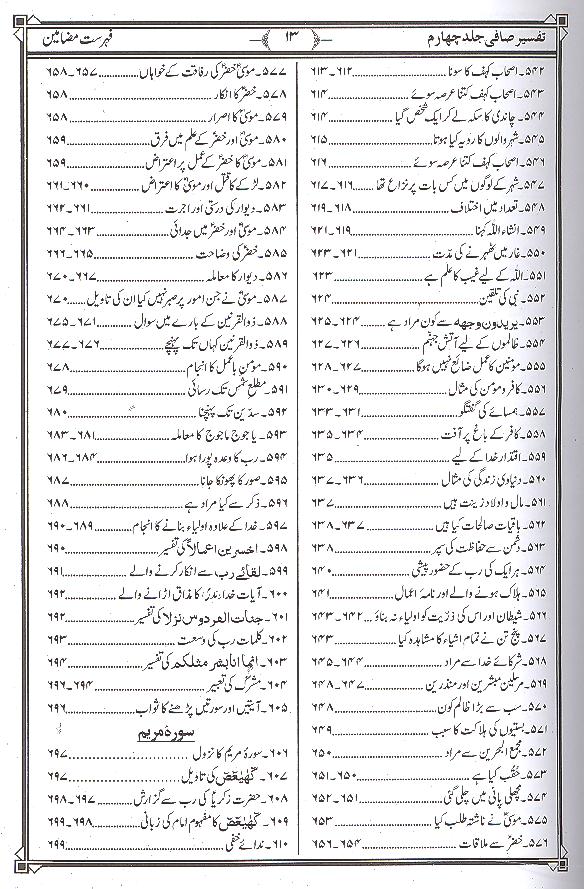 تفسیر صافی جلد چہارم
۱۳
فہرست مضامین
۵۴۲۔ اصحاب کہف کا سونا ۶۱۲۔۶۱۳
۵۴۳۔ اصحاب کہف کتنا عرصہ سوئے ۶۱۴
۵۴۴۔ چاندی کا سکہ لے کر ایک شخص گیا ۶۱۴
۵۴۵۔ شہر والوں کا رد یہ کیا ہوتا ۶۱۵
۵۴۶۔ اصحاب کہف کتنا عرصہ سوئے ۶۱۶
۵۴۷۔ شہر کے لوگوں میں کس بات پر نزاع تھا ۶۱۶۔۶۱۷
۵۴۸۔ تعداد میں اختلاف ۶۱۸۔۶۱۹
۵۴۹۔ انشاء اللہ کہنا ۶۱۹۔۶۲۱
۵۵۰۔ غار میں ٹھہرنے کی مدّت ۶۲۱۔۶۲۳
۵۵۱۔ اللہ کے لیے غیب کا علم ہے ۶۲۳
۵۵۲۔ نبی کی تلقین ۶۲۴
۵۵۳۔ یریدون وجھه سے کون مراد ہے ۶۲۴۔۶۲۵
۵۵۴۔ ظالموں کے لیے آتش جہنم ۶۲۶۔۶۲۷
۵۵۵۔ مومنین کا عمل ضائع نہیں ہوگا ۶۲۷۔۶۲۸
۵۵۶۔ کافر و مومن کی مثال ۶۲۹۔۶۳۰
۵۵۷۔ ہمسائے کی گفتگو ۶۳۱۔۶۳۳
۵۵۸۔ کافر کے باغ پر آفت ۶۳۴۔۶۳۵
۵۵۹۔ اقتدار خدا کے لیے ۶۳۵
۵۶۰۔ دنیاوی زندگی کی مثال ۶۳۶۔۶۳۷
۵۶۱۔ مال و اولاد زینت ہیں ۶۳۷
۵۶۲۔ باقیات صالحات کیا ہیں ۶۳۷۔۶۳۸
۵۶۳۔ دشمن سے حفاظت کی سپر ۶۳۸
۵۶۴۔ ہر ایک کی رب کے حضور پیشی ۶۴۰
۵۶۵۔ ہلاک ہونے والے اور نامہ اعمال ۶۴۱
۵۶۶۔ شیطان اور اس کی ذریّت کو اولیاء نہ بناؤ ۶۴۲۔۶۴۳
۵۶۷۔ پنج تن نے تمام اشیاء کا مشاہدہ کیا ۶۴۳
۵۶۸۔ شرکائے خدا سے مراد ۶۴۴۔۶۴۵
۵۶۹۔ مرسلین مبشرین اور منذرین ۶۴۷۔۶۴۸
۵۷۰۔ سب سے بڑا ظالم کون ۶۴۸
۵۷۱۔ بستیوں کی ہلاکت کا سبب ۶۴۹
۵۷۲۔ مجمع البحرین سے مراد ۶۵۰
۵۷۳۔ حُقُب کیا ہے ۶۵۰۔۶۵۱
۵۷۴۔ مچھلی پانی میں چلی گئی ۶۵۱۔۶۵۲
۵۷۵۔ موسیٰؑ نے ناشتہ طلب کیا ۶۵۳
۵۷۶۔ خضرؑ سے ملاقات ۶۵۴۔۶۵۶
۵۷۷۔ موسیٰؑ خضرؑ کی رفاقت کے خواہاں ۶۵۷۔۶۵۸
۵۷۸۔ خضرؑ کا انکار ۶۵۸
۵۷۹۔ موسیٰؑ کا اصرار ۶۵۸
۵۸۰۔ موسیٰؑ اور خضرؑ کے علم میں فرق ۶۵۹
۵۸۱۔ موسیٰؑ کا خضرؑ کے عمل پر اعتراض ۶۵۹
۵۸۲۔ لڑکے کا قتل اور موسیٰؑ کا اعتراض ۶۶۰۔۶۶۱
۵۸۳۔ دیوار کی درستی اور اجرت ۶۶۱۔۶۶۲
۵۸۴۔ موسیٰؑ اور خضرؑ میں جدائی ۶۶۳۔۶۶۴
۵۸۵۔ خضرؑ کی وضاحت ۶۶۵۔۶۶۶
۵۸۶۔ دیوار کا معاملہ ۶۶۷۔۶۷۰
۵۸۷۔ موسیٰؑ نے جن امور پر صبر نہیں کیا ان کی تاویل ۶۷۰
۵۸۸۔ ذوالقرنین کے بارے میں سوال ۶۷۱۔۶۷۵
۵۸۹۔ ذوالقرنین کہاں تک پہنچے ۶۷۶۔۶۷۷
۵۹۰۔ مومن باعمل کا انجام ۶۷۸
۵۹۱۔ مطلع شمس تک رسائی ۶۷۹
۵۹۲۔ سدّین تک پہنچنا ۶۸۰
۵۹۳۔ یاجوج ماجوج کا معاملہ ۶۸۱۔۶۸۳
۵۹۴۔ رب کا وعدہ پورا ہوا ۶۸۴۔۶۸۶
۵۹۵۔ صور کا پھونکا جانا ۶۸۷
۵۹۶۔ ذکر سے کیا مراد ہے ۶۸۸
۵۹۷۔ خدا کے علاوہ اولیاء بنانے کا انجام ۶۸۹۔۶۹۰
۵۹۸۔ اخسرین اعمالاً کی تفسیر ۶۹۰
۵۹۹۔ لقائے رب سے انکار کرنے والے ۶۹۱
۶۰۰۔ آیات خداوندی کا مذاق اڑانے والے ۶۹۲
۶۰۱۔ جنات الفردوس نزلا کی تفسیر ۶۹۲
۶۰۲۔ کلمات رب کی وسعت ۶۹۳
۶۰۳۔ انما انا بشر مثلکم کی تفسیر ۶۹۴
۶۰۴۔ مشرک کی تعبیر ۶۹۴۔۶۹۶
۶۰۵۔ آیتیں اور سورتیں پڑھنے کا ثواب ۶۹۶
سورۂ مریم
۶۰۶۔ سورۂ مریم کا نزول ۶۹۷
۶۰۷۔ کھیعص کی تاویل ۶۹۷
۶۰۸۔ حضرت زکریاؑ کی رب سے گزارش ۶۹۷۔۶۹۸
۶۰۹۔ کھیعص کا مفہوم امام کی زبانی ۶۹۸۔۶۹۹
۶۱۰۔ ندائے خفی ۶۹۹